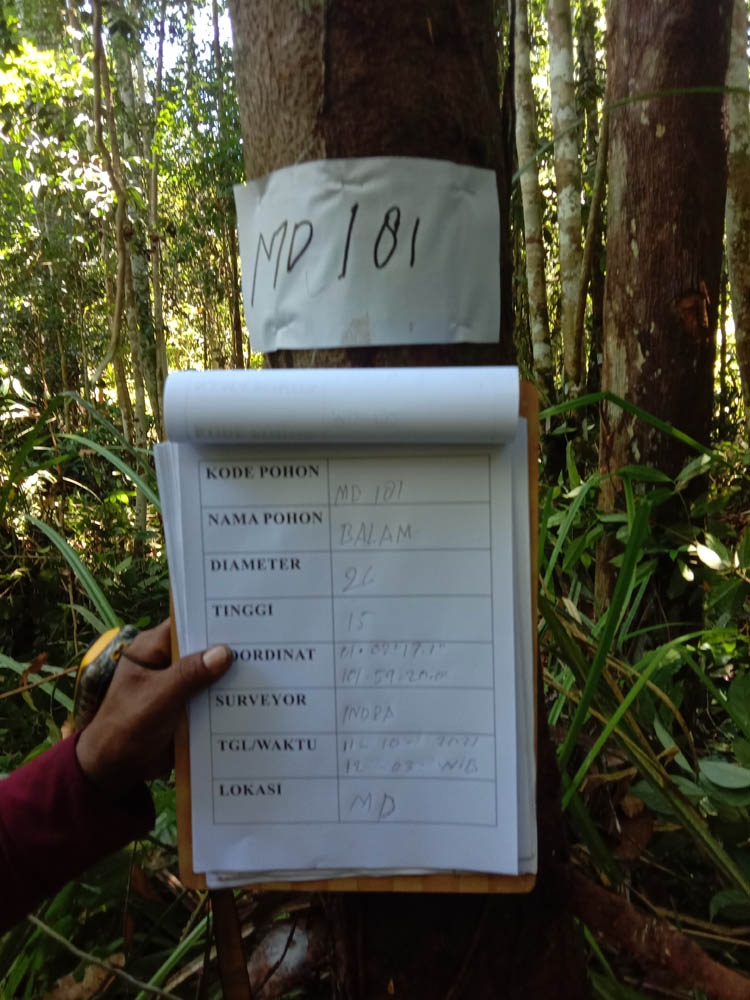 MD 181
KODE POHON MD 181
NAMA POHON BALAM
DIAMETER 26
TINGGI 15
OORDINAT 01.02'17.1"
101.59.20.0
SURVEYOR INDRA
TGL/WAKTU 11-10-2021
12-03 WIB
LOKASI MD